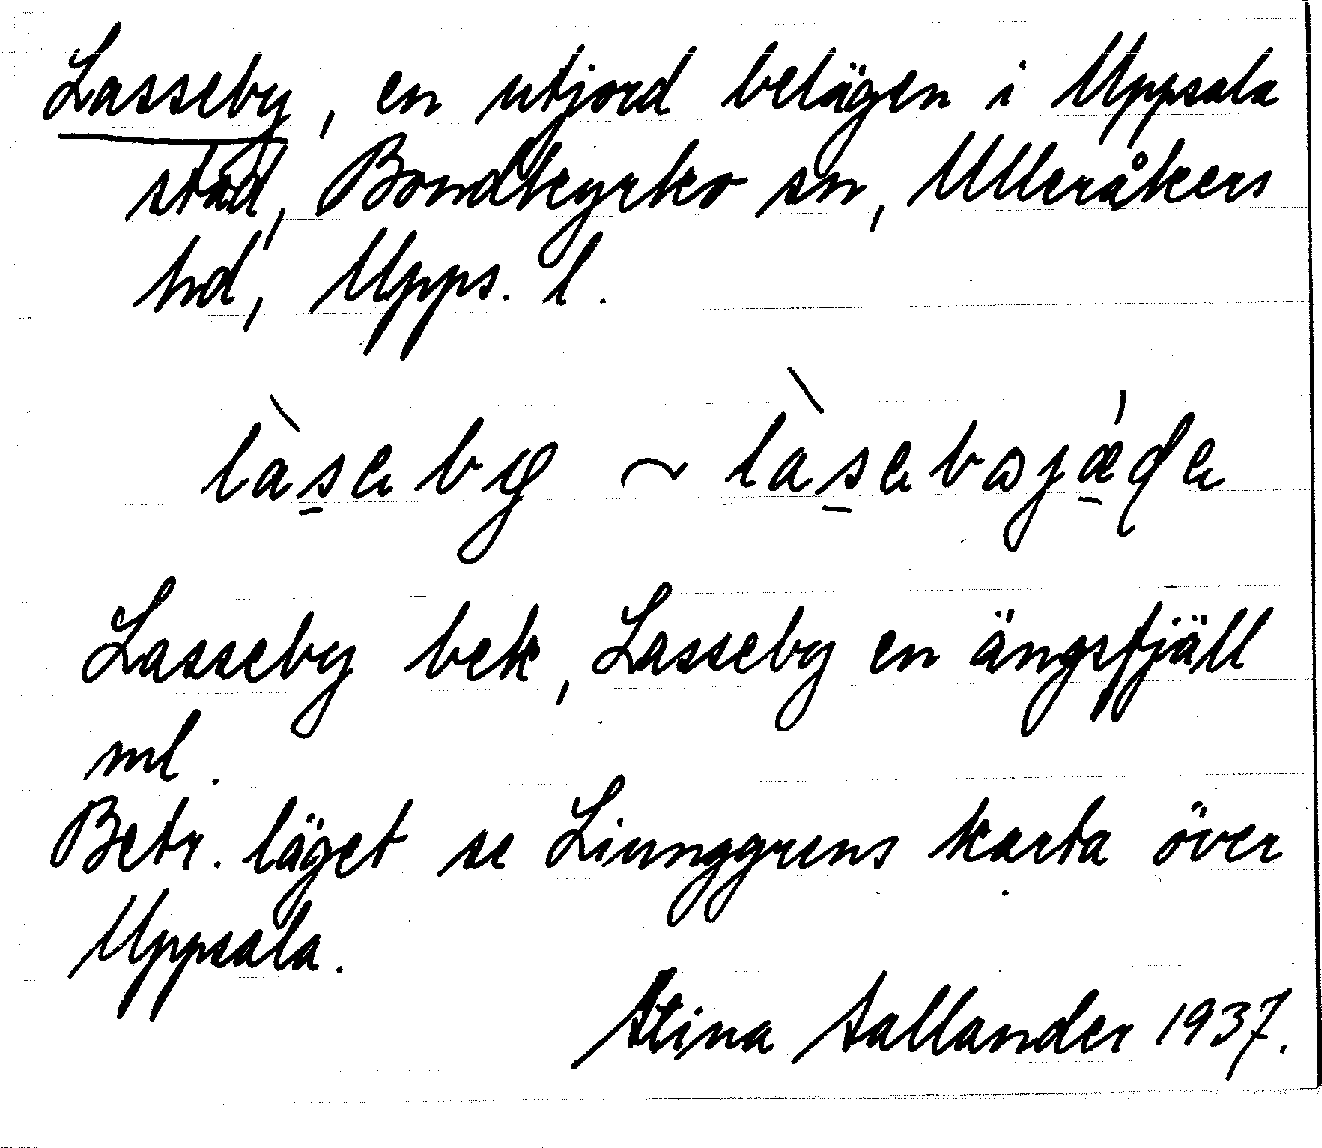 Lasseby, en utjord belägen i Uppsala
stad, Bondkyrko sn, Ulleråkers
hd, Upps. l.
làseby ~ làsebyjä́ɖe
Lasseby bek, Lasseby en ängsfjäll
ml.
Betr. läget se Linnggrens karta över
Uppsala.
Stina Sallander 1937.